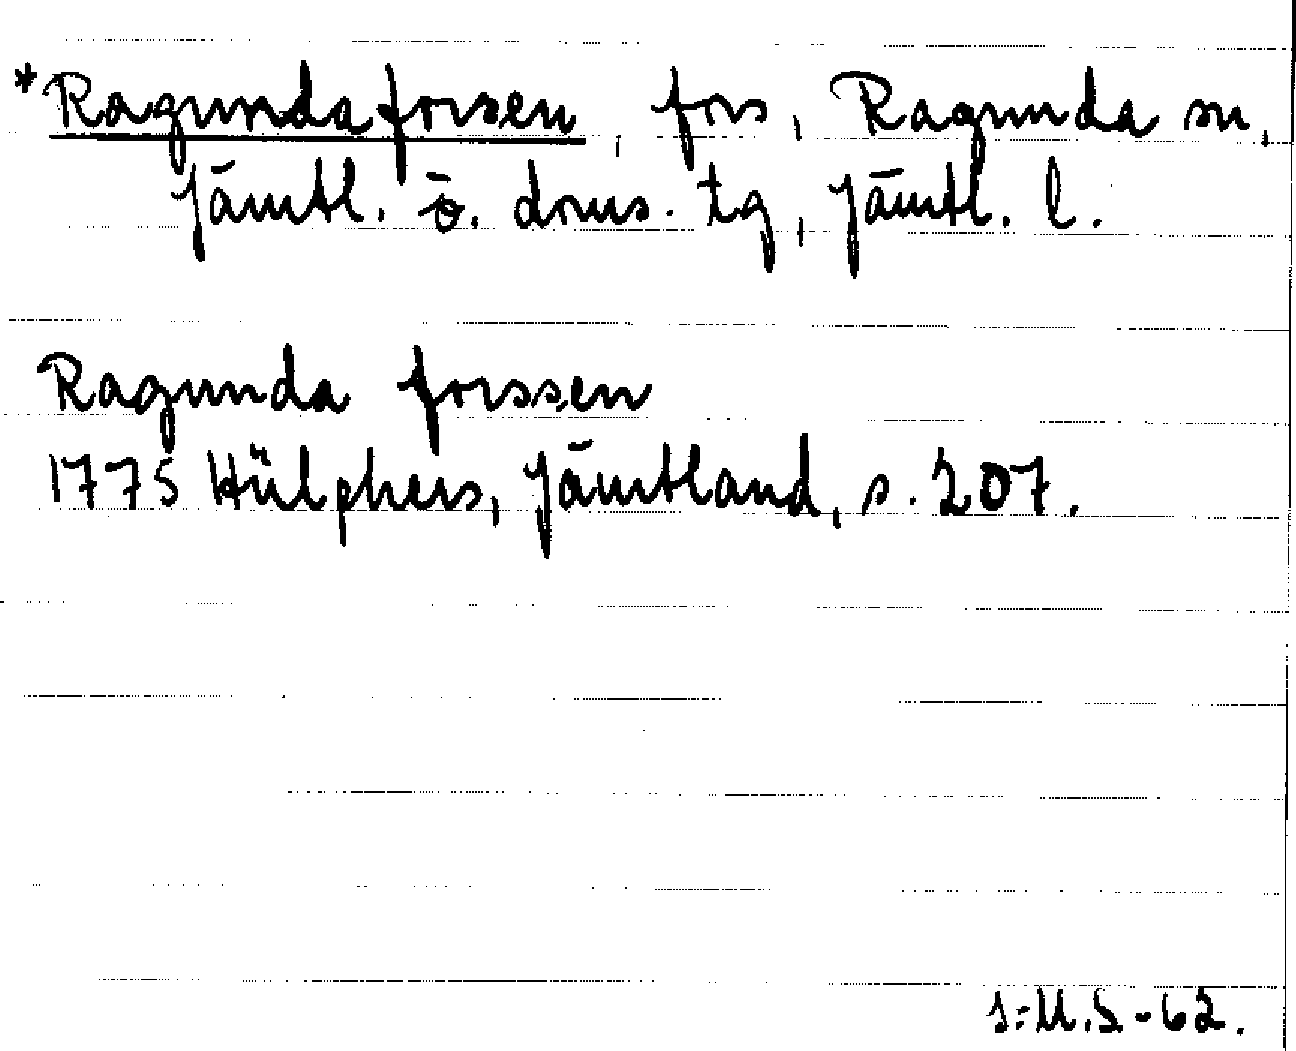 *Ragundaforsen, fors, Ragunda sn,
Jämtl. ö. doms. tg, Jämtl. l.
Ragunda forssen
1775 Hülphers, Jämtland, s. 207.
M.S-62.